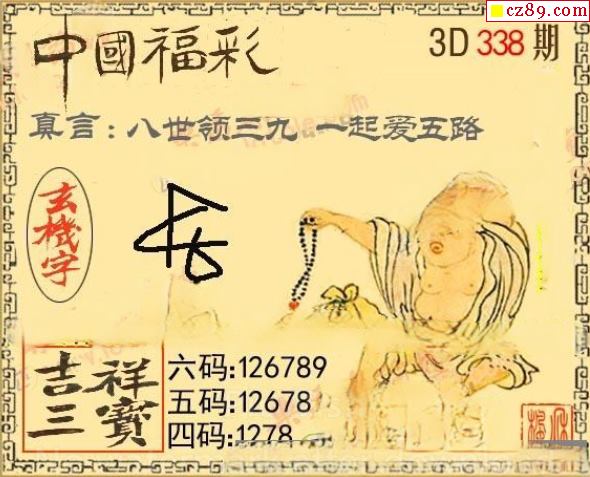 cz89.com
中國福彩
3D 338 期
真言：八世领三九 一起爱五路
玄機字
吉祥
三寶
六码:126789
五码:12678
四码:1278